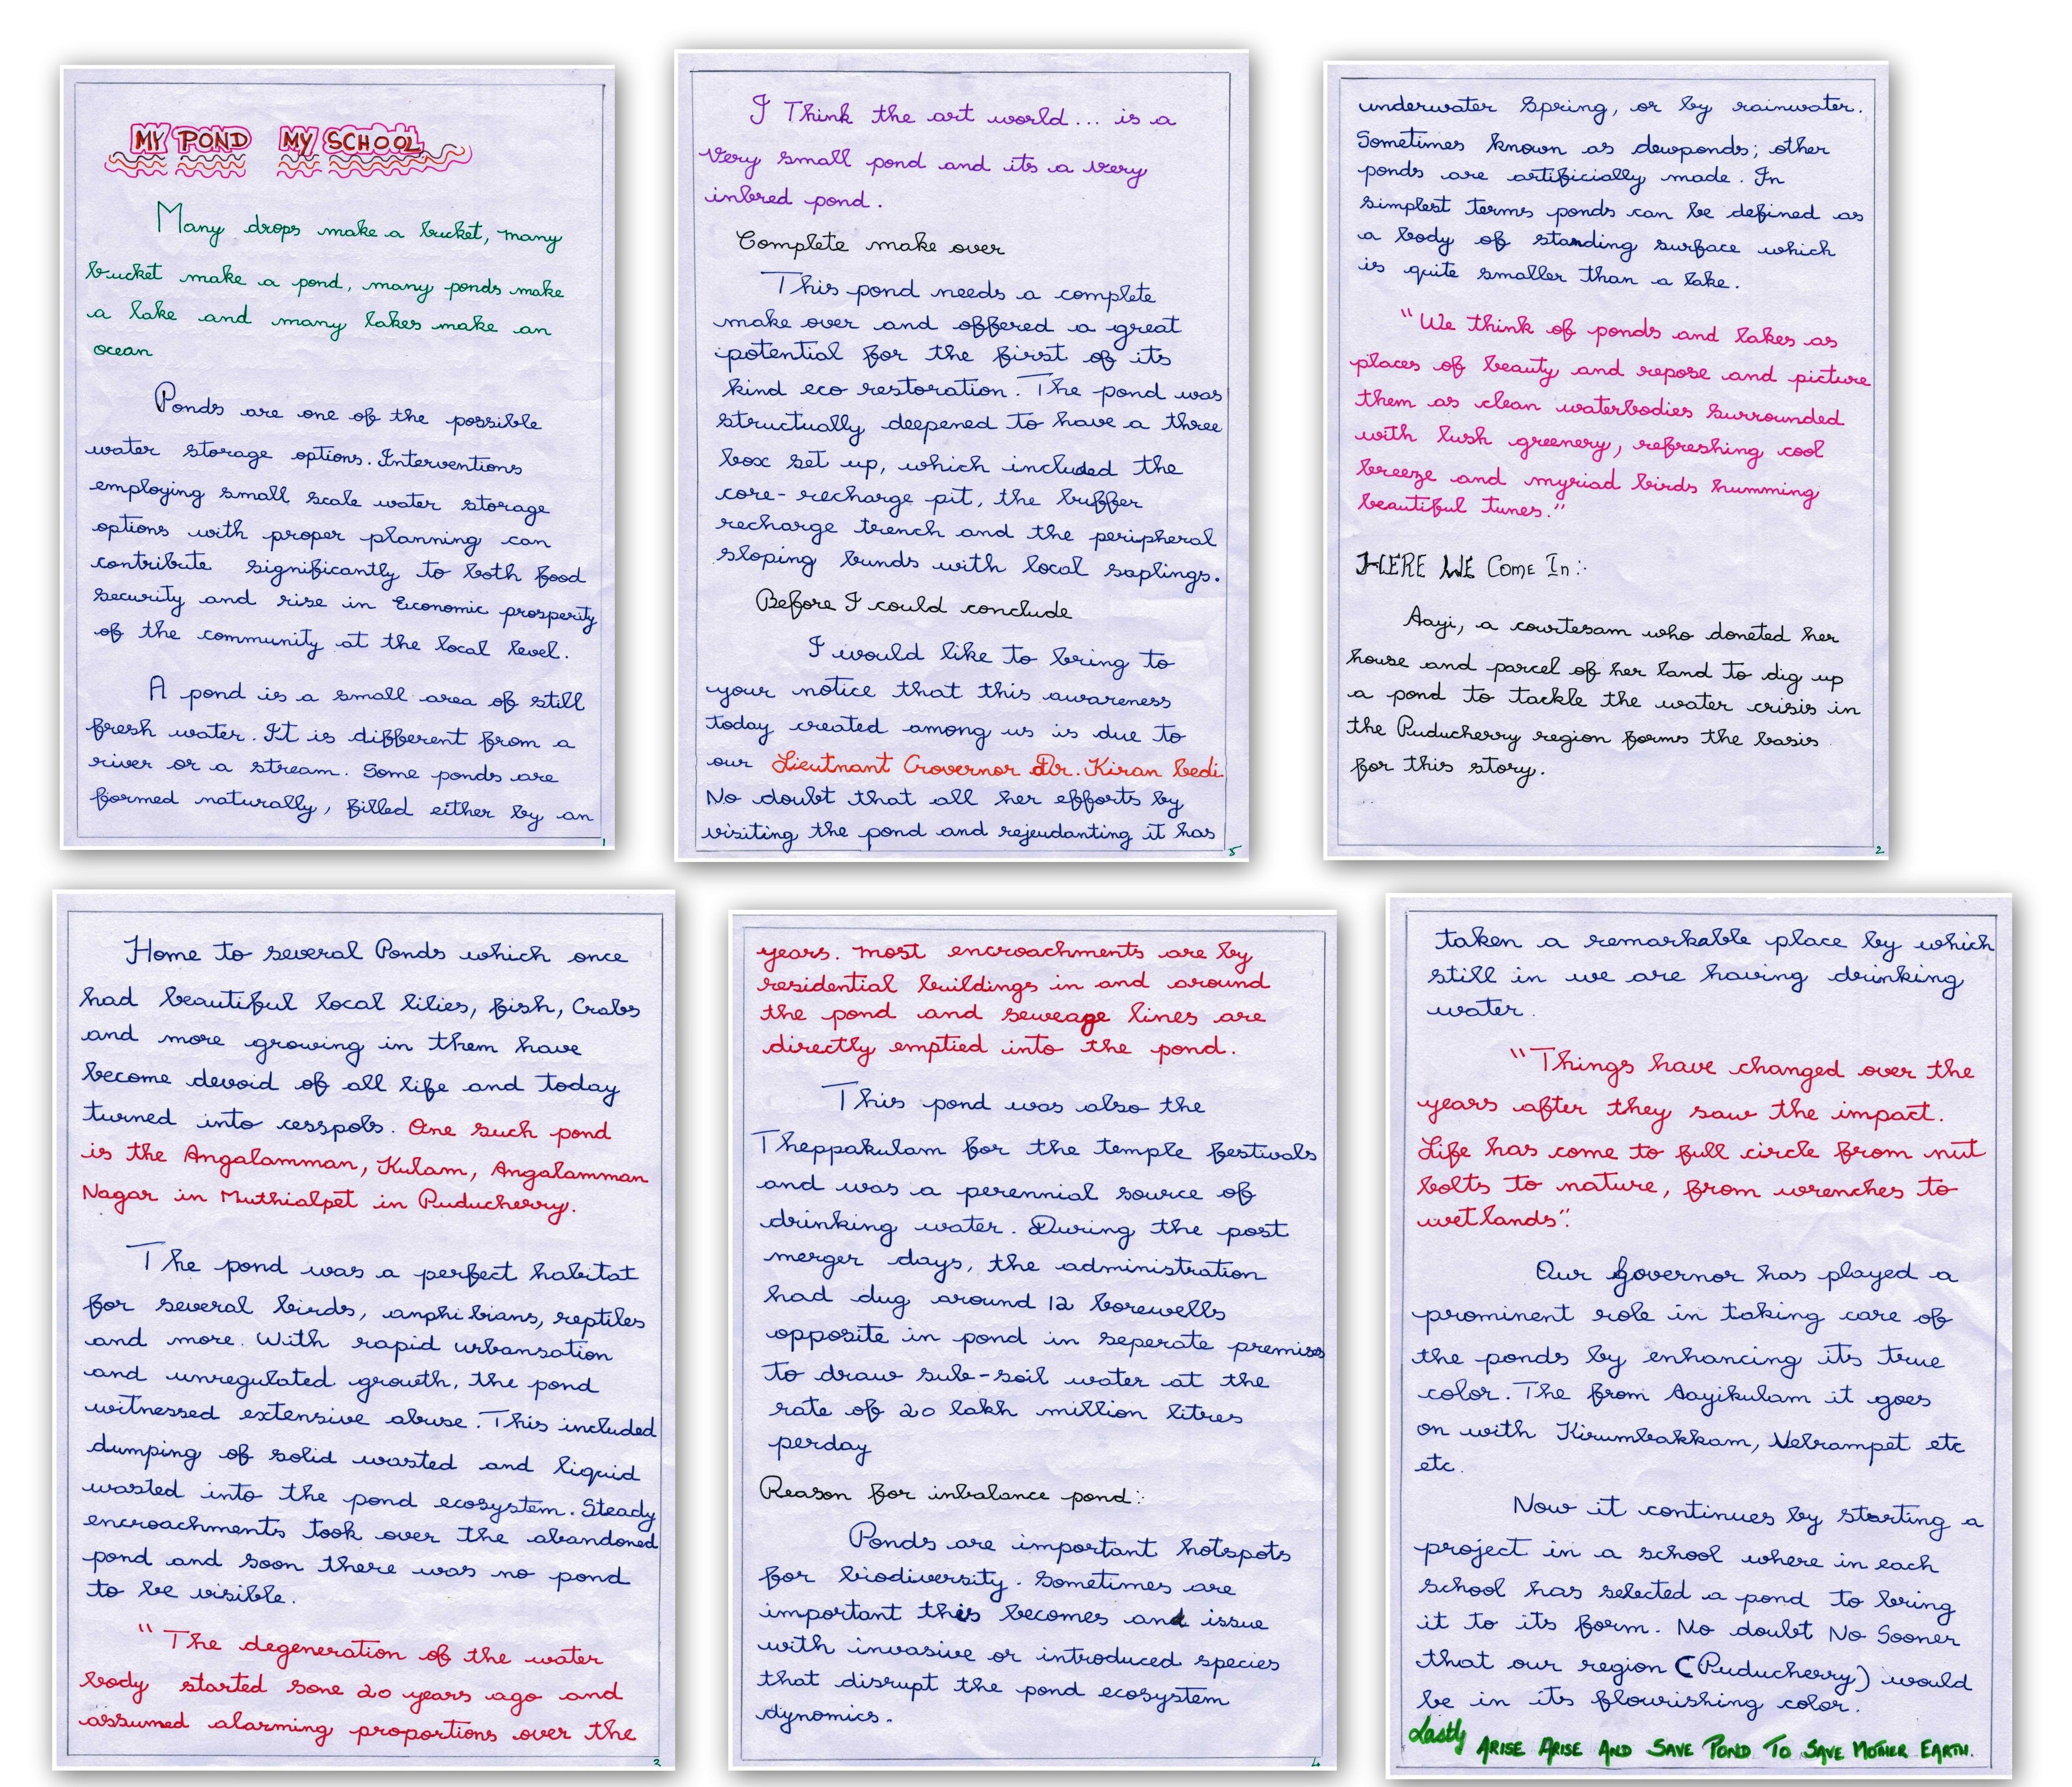 MY POND MY SCHOOL
Many drops make a bucket, many
bucket make a pond, many ponds make
a lake and many lakes make an
ocean
Ponds are one of the possible
water storage options. Interventions
employing small scale water storage
options with proper planning can
contribute significantly to both food
security and rise in Economic prosperity
of the community at the local level.
A pond is a small area of still
fresh water. It is different from a
river or a stream. Some ponds are
formed naturally, filled either by an
1
underwater spring, or by rainwater.
Sometimes known as dewponds; other
ponds are artificially made. In
simplest terms ponds can be defined as
a body of standing surface which
is quite smaller than a lake.
"We think of ponds and lakes as
places of beauty and repose and picture
them as clean waterbodies surrounded
with lush greenery, refreshing cool
breeze and myriad birds humming
beautiful tunes."
HERE WE Come In:-
Aayi, a courtesam who doneted her
house and parcel of her land to dig up
a pond to tackle the water crisis in
the Puducherry region forms the basis
for this story.
2
Home to several Ponds which once
had beautiful local lilies, fish, Crabs
and more growing in them have
become devoid of all life and today
turned into cesspols. One such pond
is the Angalamman, Kulam, Angalamman
Nagar in Muthialpet in Puducherry.
The pond was a perfect habitat
for several birds, anphibians, reptiles
and more. With rapid urbansation
and unregulated growth, the pond
witnessed extensive abuse. This included
dumping of solid wasted and liquid
wasted into the pond ecosystem. Steady
encroachments took over the abandoned
pond and soon there was no pond
to be visible.
"The degeneration of the water
body started sone 20 years ago and
assumed alarming proportions over the
3
years. most encroachments are by
residential buildings in and around
the pond and seweage lines are
directly emptied into the pond.
This pond was also the
Theppakulam for the temple festivals
and was a perennial source of
drinking water. During the post
merger days, the administration
had dug around 12 borewells
opposite in pond in seperate premises
to draw sub-soil water at the
rate of 20 lakh million litres
perday
Reason for inbalance pond:-
Ponds are important hotspots
for biodiversity. Sometimes are
important this becomes and issue
with invasive or introduced species
that disrupt the pond ecosystem
dynamics.
4
I Think the art world... is a
very small pond and its a very
inbred pond.
Complete make over
This pond needs a complete
make over and offered a great
potential for the first of its
kind eco restoration. The pond was
structually deepened to have a three
box set up, which included the
core-recharge pit, the buffer
recharge trench and the peripheral
sloping bunds with local saplings.
Before I could conclude
I would like to bring to
your notice that this awareness
today created among us is due to
our Lieutnant Crovernor Dr. Kiran bedi
No doubt that all her efforts by
visiting the pond and rejeudanting it has
5
taken a remarkable place by which
still in we are having drinking
water.
"Things have changed over the
years after they saw the impact.
Life has come to full circle from nut
bolts to nature, from wrenches to
wetlands".
Our Governor has played a
prominent role in taking care of
the ponds by enhancing its true
color. The from Aayikulam it goes
on with Kirumbakkam, Nelrampet etc
etc.
Now it continues by starting a
project in a school where in each
school has selected a pond to bring
it to its form. No doubt No Sooner
that our region (Puducherry) would
be in its flourishing color.
Lastly ARISE ARISE AND SAVE POND TO SAVE MOTHER EARTH.